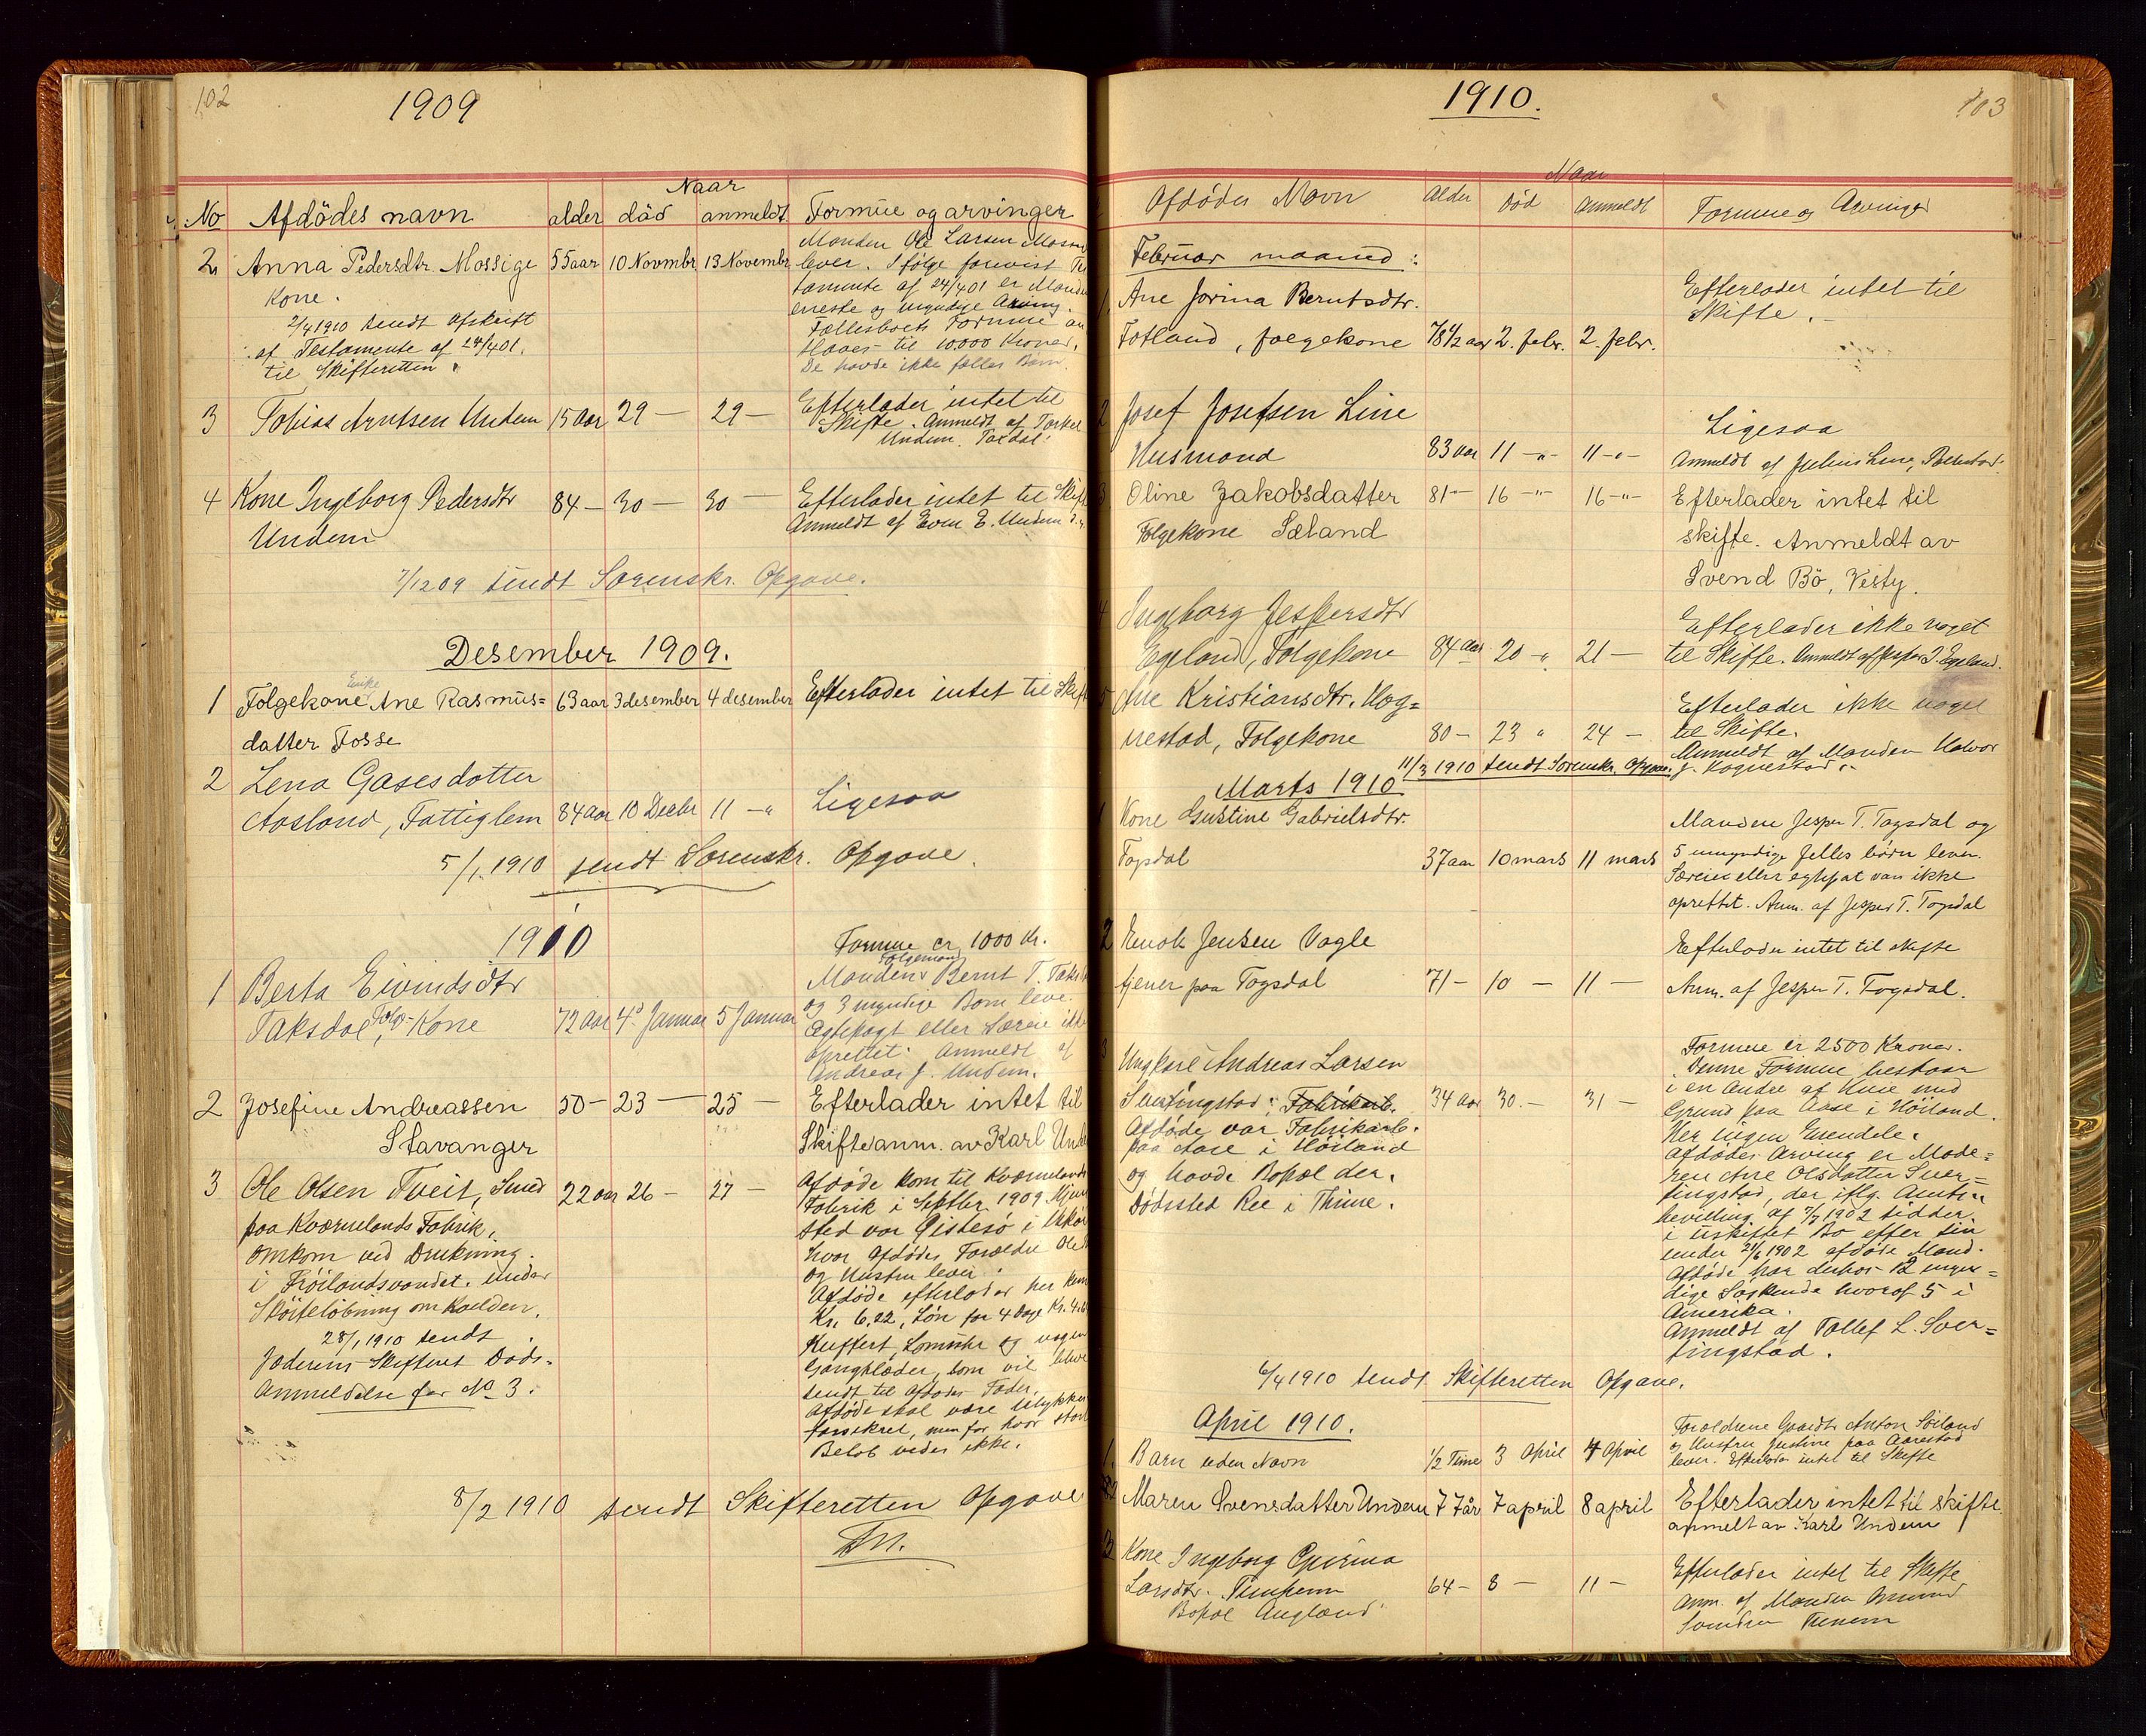 102
1909
Naar
No Afdödes navn alder död anmeldt Formue og arvinger
2 Anna Pedersdtr. Mossige 55 aar 10 Novmbr 13 Novembr
Kone.
2/4 1910 sendt Afskrift
af Testamente af 24/4 01.
til Skifteretten.
Manden Ole Larsen
lever. Ifølge forevist
tamente af 24/4 01 er
eneste og myndige Arving.
Fællesboets Formue
til 10000 Kroner.
De havde ikke fælles Børn.
3 Tobias Arntsen Undem 15 aar 29 — 29 —
Efterlader intet til
Skifte. Anmeldt af Torkel
Undem.
4 Kone Ingeborg Pedersdtr 84 — 30 — 30 —
Undem
Efterlader intet til
Anmeldt af Even E. Undem
7/12 09 sendt Sorenskr. Opgave.
Desember 1909.
1 Folgekone Enke Ane Rasmus= 63 aar 3 desember 4 desember Efterlader intet til
datter Fosse
2 Lena Gasesdatter
Aasland, Fattiglem 84 aar 10 Decbr 11 — " Ligesaa
5/1 1910 sendt Sorenskr. Opgave.
1910
1 Berta Eivindsdtr
Taksdal, Folge-Kone 72 aar 4 Januar 5 Januar
Formue er 1000 Kr.
Folgemand
Manden Bernt T.
og 3 myndige Børn leve.
Ægtepagt eller Særeie
oprettet. Anmeldt af
Andreas J. Undem.
2 Josefine Andreassen 50 — 23 — 25 —
Stavanger
Efterlader intet til
Skifte anm. av Karl
3 Ole Olsen Tveit, Smed 22 aar 26 — 27 —
paa Kværnelands Fabrik,
Omkom ved Drukning
i Frøilandsvandet under
Skøiteløbning om Kvelden.
28/1 1910 sendt
Jæderens Skifteret Døds-
Anmeldelse for No 3.
Afdøde kom til Kværnelands
Fabrik i Septbr. 1909.
sted var
hvor Afdødes Forældre
og Hustru lever.
Afdøde efterlader her
Kr. 6,22, Løn for 4 Dage
Kuffert, Lommeuhr og
Gangklæder, som vil
sendt til Afdødes Fader.
Afdøde skal være
forsikret, men for hvor
Beløb vides ikke.
8/2 1910 sendt Skifteretten Opgave
1910.
103
Naar
Afdødes Navn Alder Død Anmeldt Formue og Arvinger
Februar maaned:
1. Ane Jorina Berntsdtr.
Fotland, folgekone 78 1/2 aar 2. febr. 2. febr.
Efterlader intet til
Skifte.
2 Josef Josefsen Line
Husmand 83 aar 11 — " — 11 — " —
Ligesaa
Anmeldt af Julius Line,
3 Oline Jakobsdatter 81 — 16 — " — 16 — " —
Folgekone Sæland
Efterlader intet til
skifte. Anmeldt av
Svend Bö, Vesty.
4 Ingeborg Jespersdtr
Egeland, Folgekone 84 aar 20 — " 21 —
Efterlader ikke noget
til Skifte. Anmeldt af Jesper J. Egeland.
5 Ane Kristiansdtr. Hog=
nestad, Folgekone 80 — 23 " 24 —
Efterlader ikke noget
til Skifte.
Anmeldt af Manden Halvor
J. Hognestad.
11/3 1910 sendt Sorenskr. Opgave.
Marts 1910
1 Kone Gustine Gabrielsdtr.
Togsdal 37 aar 10 mars 11 mars
Manden Jesper T. Togsdal og
5 umyndige felles børn lever.
Særeie eller egtepat var ikke
oprettet. Anm. af Jesper T. Togsdal
2 Enok Jensen Vagle
tjener paa Togsdal 71 — 10 — 11 —
Efterlader intet til skifte
Anm. af Jesper T. Togsdal.
3 Ungkarl Andreas Larsen
Svertingstad, Fabrikarb. 34 aar 30. — 31 —
Afdøde var Fabrikarb.
paa Aase i Höiland
og havde Bopæl der.
Dødssted Ree i Thime.
Formue er 2500 Kroner.
Denne Formue bestaar
i en Andre af Huse med
Grund paa Aase i Höiland.
Her ingen Eiendele.
Afdødes Arving er Mode=
ren Ane Olsdatter Sver=
tingstad, der iflg. Amts=
bevilling af 7/7 1902 sidder
i uskiftet Bo efter sin
under 21/6 1902 afdøde Mand.
Afdøde har derhos 12 myn=
dige Søskende hvoraf 5 i
Amerika.
Anmeldt af Tollef L. Sver=
tingstad.
6/4 1910 sendt Skifteretten Opgave.
April 1910.
1. Barn uden Navn 1/2 Time 3 April 4 April
Forældrene Gaardbr. Anton Söiland
og Hustru Justine paa Aarestad
lever. Efterlader intet til Skifte
2 Maren Svensdatter Undem 77 år 7 april 8 april
Efterlader intet til skifte
anmelt av Karl Undem
3 Kone Ingeborg
Larsdtr. 64 — 8 — 11 —
Bopæl
Efterlader intet til Skifte
Anm. af Manden